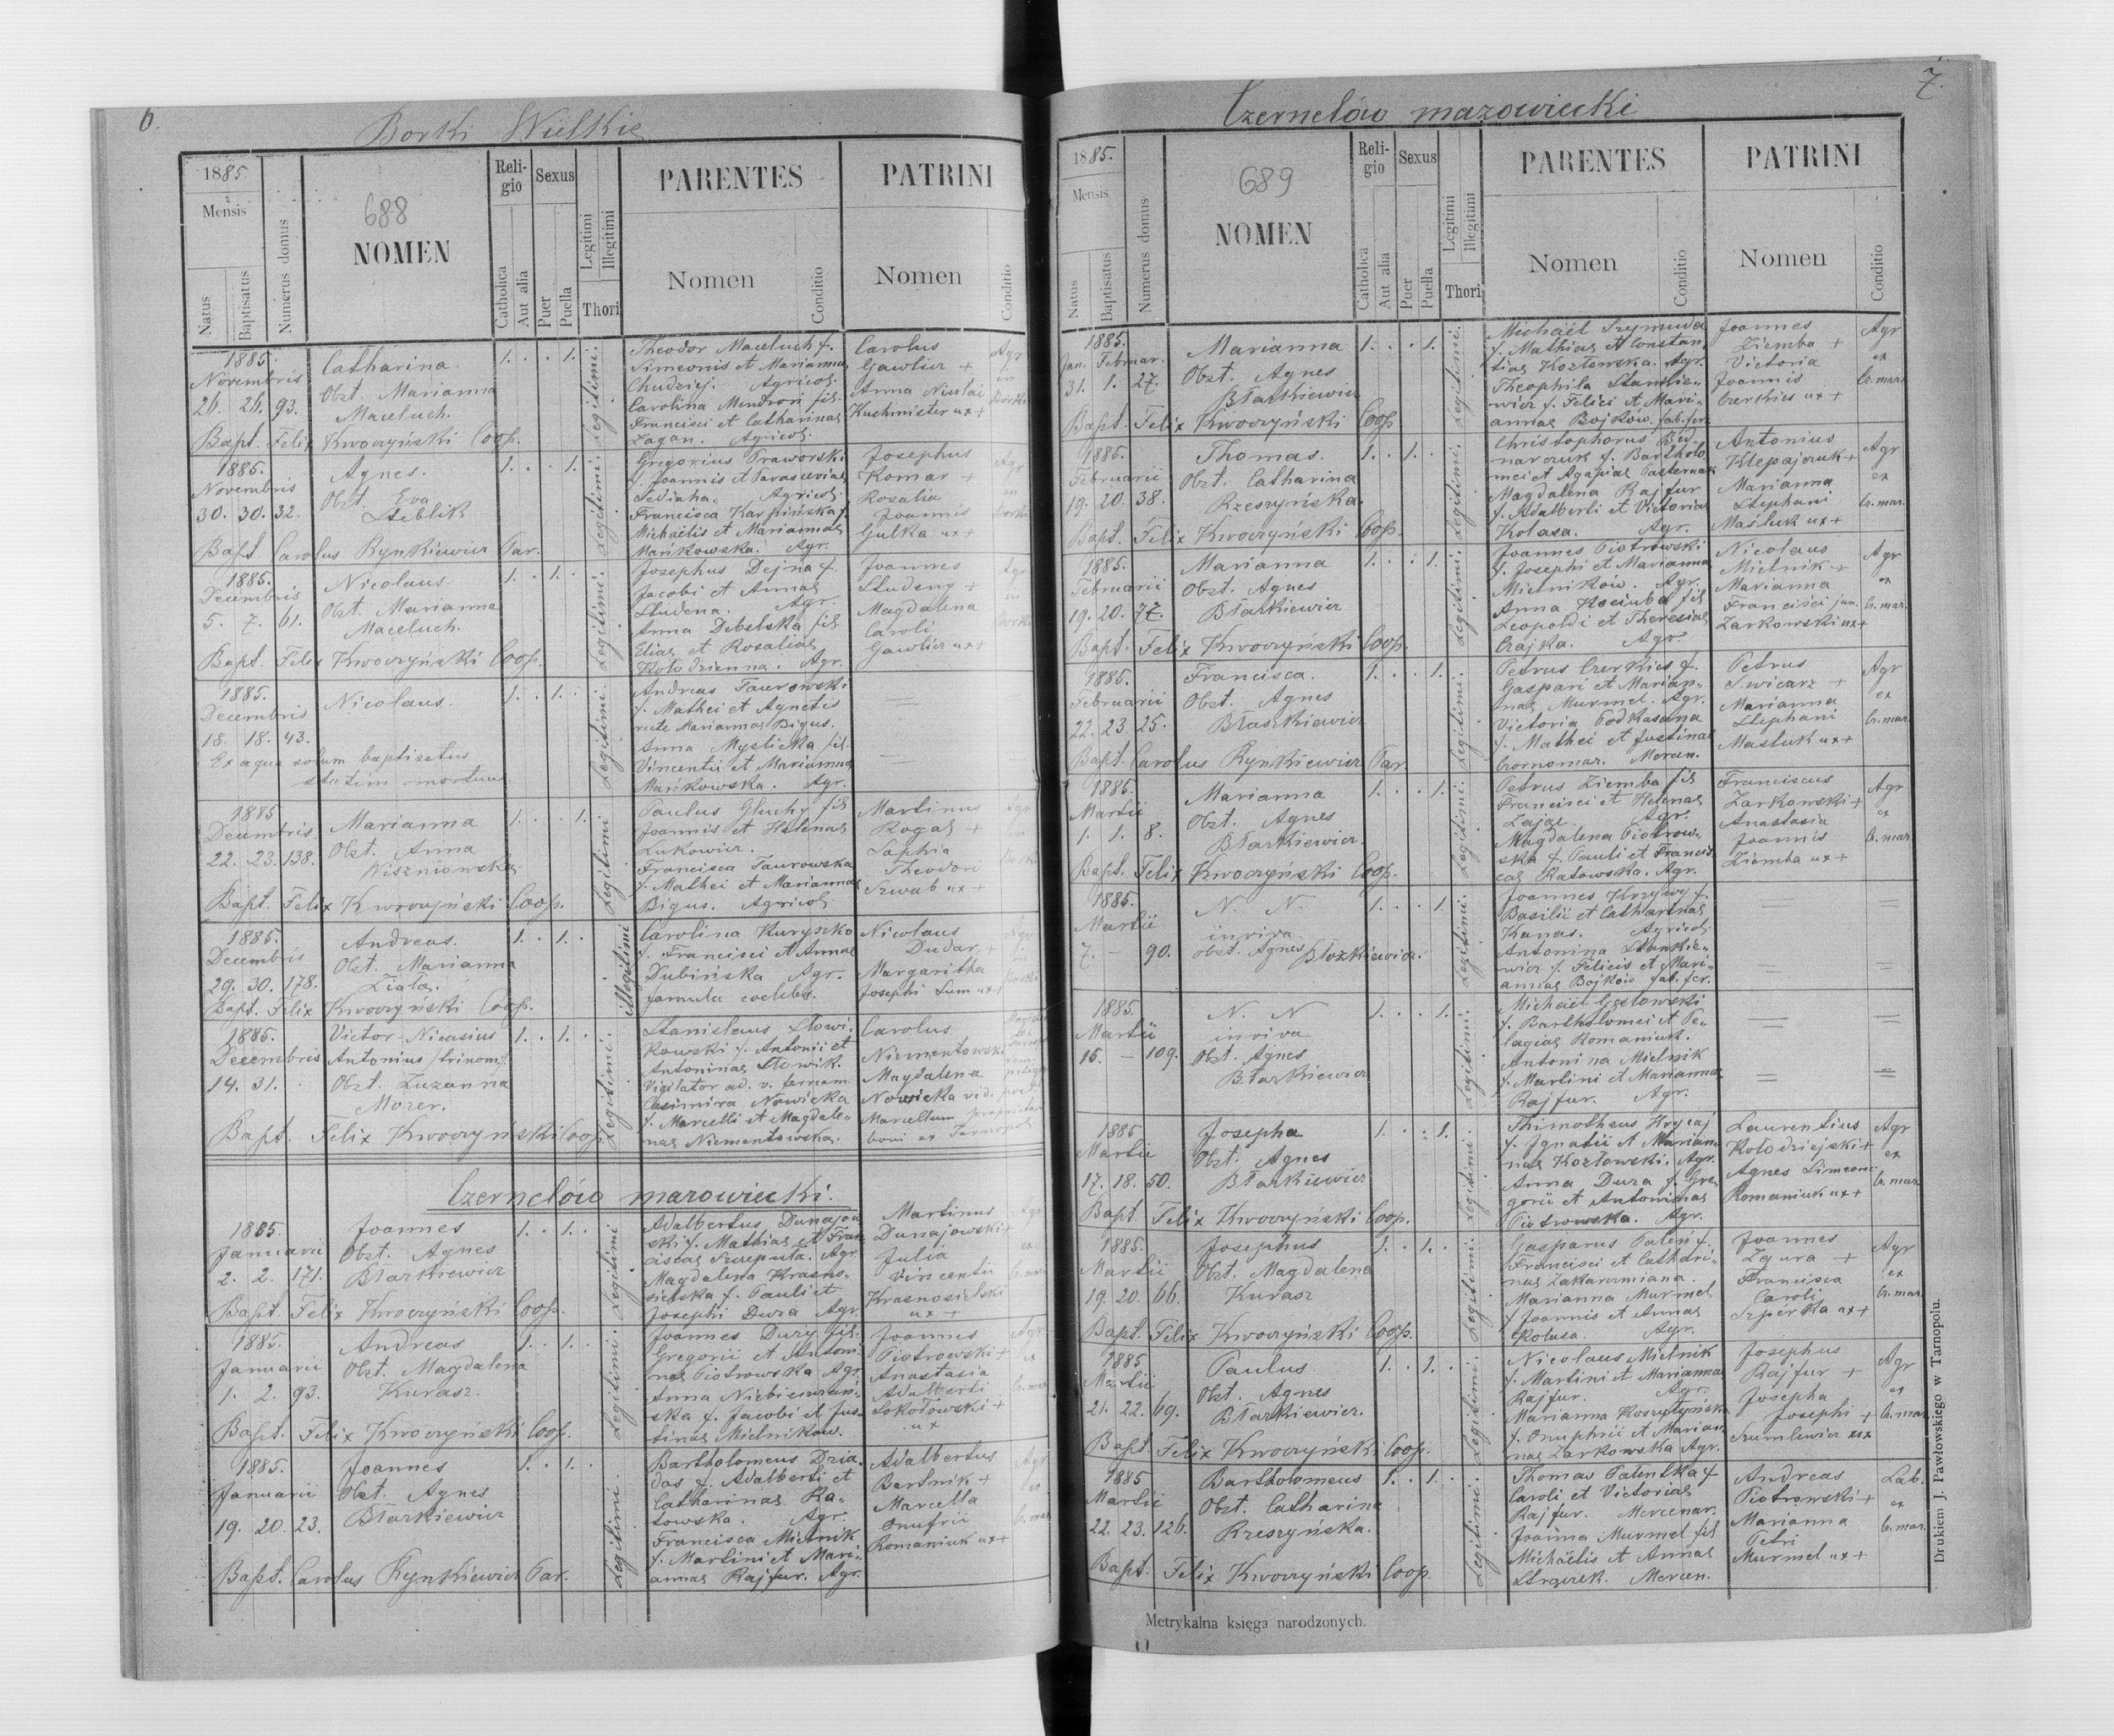 6.
Borki Wielkie
1885
Mensis
Natus
Baptisatus
Numerus domus
688
NOMEN
Religio
Catholica
Aut alia
Sexus
Puer
Puella
Legitimi
Illegitimi
Thori
PARENTES
Nomen
Conditio
PATRINI
Nomen
Conditio
1885.
Novembris
26. 26. 93.
Catharina.
Obst. Marianna
Maceluch.
1. . . 1.
Legitimi.
Theodor Maceluch f.
Simeonis et Mariannae
Chudziej. Agricol.
Carolina Mendroń fil.
Francisci et Catharinae
Zagan. Agricol.
Carolus
Gawlier +
Anna Nicolai
Kuchmister ux +
Bapt. Felix Kwoczyński Coop.
1885.
Novembris
30. 30. 32.
Agnes.
Obst. Eva
Steblik
1. . . 1.
Legitimi.
Gregorius Praworski
f. Joannis et Parasceviae
Fediaha. Agricol.
Francisca Karpińska f.
Michaëlis et Mariannae
Mańkowska. Agr.
Josephus
Komar +
Rosalia
Joannis
Gulka ux +
Bapt. Carolus Rynkiewicz Par.
1885.
Decembris
5. 7. 61.
Nicolaus.
Obst. Marianna
Maceluch.
1. . 1. .
Legitimi.
Josephus Dejna f.
Jacobi et Annae
Studena. Agr.
Anna Debelska fil.
Eliae et Rosaliae
Kołodzienna. Agr.
Joannes
Studeny +
Magdalena
Caroli
Gawlier ux +
Bapt. Felix Kwoczyński Coop.
1885.
Decembris
18. 18. 43.
Nicolaus.
1. . 1. .
Legitimi.
Andreas Taurowski
f. Mathei et Agnetis
recte Mariannae Bigus.
Anna Myslicka fil.
Vincentii et Mariannae
Mańkowska. Agr.
Ex aqua solum baptisatus
statim mortuus
1885
Decembris
22. 23. 138.
Marianna
Obst. Anna
Wiszniowska
1. . . 1.
Legitimi
Paulus Gluchy fil
Joannis et Helenae
Łukowicz.
Francisca Taurowska
f. Mathei et Mariannae
Bigus. Agricol.
Martinus
Rogal +
Sophia
Theodori
Szwab ux +
Bapt. Felix Kwoczyński Coop.
1885.
Decembris
29. 30. 178.
Andreas.
Obst. Marianna
Ziała.
1. . 1. .
Illegitimi
Carolina Kuryszko
f. Francisci et Annae
Dubińska Agr.
famula coelebs.
Nicolaus
Dudar +
Margaritha
Josephi Sum ux +
Bapt. Felix Kwoczyński Coop.
1885.
Decembris
14. 31.
Victor Nicasius
Antonius /trinom/.
Obst. Zuzanna
Mozer.
1. . 1. .
Legitimi.
Stanislaus Słowi-
kowski f. Antonii et
Antoninae Słowik.
Vigilator ad. v. ferream.
Casimira Nowicka
f. Marcelli et Magdale-
nae Niementowska.
Carolus
Niementowski
Magdalena
Nowicka vid. post
Marcellum
boni ex Tarnopol
Bapt. Felix Kwoczyński Coop.
Czernelów mazowiecki.
1885.
Januarii
2. 2. 171.
Joannes
Obst. Agnes
Błaszkiewicz
1. . 1. .
Legitimi
Adalbertus Dunajow
ski f. Mathiae et Fran
ciscae Szeputa. Agr.
Magdalena Krasno-
sielska f. Pauli et
Josephi Dura Agr
Martinus
Dunajowski +
Julia
Vincentii
Krasnosielski
ux +
Bapt. Felix Kwoczyński Coop.
1885.
Januarii
1. 2. 93.
Andreas
Obst. Magdalena
Kurasz.
1. . 1. .
Legitimi.
Joannes Dury fil.
Gregorii et Antoni-
nae Piotrowska Agr.
Anna Niebieszczań-
ska f. Jacobi et Jus-
tinae Mielników.
Joannes
Piotrowski +
Anastasia
Adalberti
Sokołowski +
ux
Bapt. Felix Kwoczyński Coop.
1885.
Januarii
19. 20. 23.
Joannes
Obst. Agnes
Błaszkiewicz
1. . 1. .
Legitimi.
Bartholomeus Dzia-
das f. Adalberti et
Catharinae Ra-
towska. Agr.
Francisca Mielnik
f. Martini et Mari-
annae Rajfur. Agr.
Adalbertus
Bartnik +
Marcella
Onufrii
Romaniuk ux +
Bapt. Carolus Rynkiewicz Par.
7.
Czernelów mazowiecki
1885.
Mensis
Natus
Baptisatus
Numerus domus
689
NOMEN
Religio
Catholica
Aut alia
Sexus
Puer
Puella
Legitimi
Illegitimi
Thori
PARENTES
Nomen
Conditio
PATRINI
Nomen
Conditio
1885.
Jan. Februar.
31. 1. 27.
Marianna
Obst. Agnes
Błaszkiewicz
1. . . 1.
Legitimi.
Michaël Szymuda
f. Mathiae et Constan
tiae Kozłowska. Agr.
Theophila Stankie-
wicz f. Felici et Mari-
annae Bojków. fab. fer.
Joannes
Ziemba +
Victoria
Joannis
Czerkies ux +
Agr
ex
Cz. maz.
Bapt. Felix Kwoczyński Coop
1885.
Februarii
19. 20. 38.
Thomas.
Obst. Catharina
Rzeszyńska.
1. . 1. .
Legitimi.
Christophorus Bed-
narczuk f. Bartholo
mei et Agapiae Pasternak
Magdalena Rajfur
f. Adalberti et Victoriae
Kolasa. Agr.
Antonius
Klepajczuk +
Marianna
Stephani
Masluk ux +
Agr
ex
Cz. maz.
Bapt. Felix Kwoczyński Coop.
1885.
Februarii
19. 20. 77.
Marianna
Obst. Agnes
Błaszkiewicz
1. . . 1.
Legitimi.
Joannes Piotrowski
f. Josephi et Marianna
Mielników. Agr.
Anna Kociuba fil
Leopoldi et Theresiae
Czajka. Agr
Nicolaus
Mielnik +
Marianna
Francisci jun.
Zarkowski ux +
Agr
ex
Cz. maz.
Bapt. Felix Kwoczyński Coop.
1885.
Februarii
22. 23. 25.
Francisca.
Obst. Agnes
Błaszkiewicz
1. . . 1.
Legitimi.
Petrus Czerkies f.
Gaspari et Marian-
nae Murmel. Agr.
Victoria Podkasana
f. Mathei et Justinae
Czornomaz. Mercen.
Petrus
Swicarz +
Marianna
Stephani
Masluk ux +
Agr
ex
Cz. maz.
Bapt. Carolus Rynkiewicz Par.
1885.
Martii
1. 1. 8.
Marianna
Obst. Agnes
Błaszkiewicz.
1. . . 1.
Legitimi.
Petrus Ziemba fil
Francisci et Helenae
Zając. Agr.
Magdalena Piotrow-
ska f. Pauli et Francis
cae Ratowska. Agr.
Franciscus
Zarkowski +
Anastasia
Joannis
Ziemba ux +
Agr
ex
Cz. maz.
Bapt. Felix Kwoczyński Coop.
1885.
Martii
7. – 90.
N. N.
inviva
obst. Agnes Błaszkiewicz.
1. . . 1.
Legitimi.
Joannes Krzywy f.
Basilii et Catharinae
Kanas. Agricol.
Antonina Stankie-
wicz f. Felicis et Mari-
annae Bojków fab. fer.
1885.
Martii
15. – 109.
N. N
inviva
Obst. Agnes
Błaszkiewicz
1. . . 1.
Legitimi.
Michaël Gęstowski
f. Bartholomei et Pe-
lagiae Romaniuk.
Antonina Mielnik
f. Martini et Mariannae
Rajfur. Agr.
1885
Martii
17. 18. 50.
Josepha
Obst. Agnes
Błaszkiewicz
1. . . 1.
Legitimi.
Thimotheus Hrycaj
f. Ignatii et Marian
nae Kozłowski. Agr.
Anna Dura f. Gre-
gorii et Antoninae
Piotrowska. Agr.
Laurentius
Kołodziejski +
Agnes Simeoni
Romaniuk ux +
Agr
ex
Cz. maz
Bapt Felix Kwoczyński Coop.
1885.
Martii
19. 20. 66.
Josephus
Obst. Magdalena
Kurasz
1. . 1. .
Legitimi.
Gasparus Palen f.
Francisci et Cathari-
nae Zakaremiana.
Marianna Murmel
f Joannis et Annae
Kolasa. Agr.
Joannes
Zgura +
Francisca
Caroli
Szperka ux +
Agr
ex
Cz. maz.
Bapt. Felix Kwoczyński Coop.
1885
Martii
21. 22. 69.
Paulus
Obst. Agnes
Błaszkiewicz.
1. . 1. .
Legitimi.
Nicolaus Mielnik
f. Martini et Mariannae
Rajfur. Agr.
Marianna Koszytyńska
f. Onuphrii et Marian
nae Zarkowska Agr.
Josephus
Rajfur +
Josepha
Josephi +
Szumlewicz ux
Agr
ex
Cz. maz.
Bapt. Felix Kwoczyński Coop.
1885
Martii
22. 23. 126.
Bartholomeus
Obst. Catharina
Rzeszyńska.
1. . 1. .
Legitimi.
Thomas Palenłka f
Caroli et Victoriae
Rajfur. Mercenar.
Joanna Murmel fil
Michaëlis et Annae
Strączek. Mercen.
Andreas
Piotrowski +
Marianna
Petri
Murmel ux +
Lab.
ex
Cz. maz.
Bapt. Felix Kwoczyński Coop
Metrykalna księga narodzonych.
Drukiem J. Pawłowskiego w Tarnopolu.